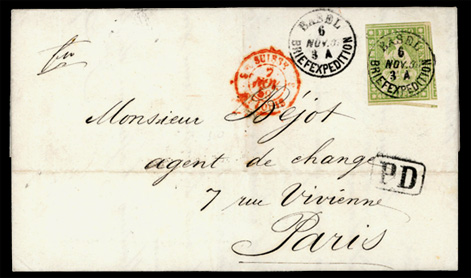 BASEL
6
NOV.
3 A
BRIEFEXPEDITION
BASEL
6
NOV.
3 A
BRIEFEXPEDITION
SUISSE
7
Monsieur Béjot
agent de change
PD
7 rue Vivienne
Paris